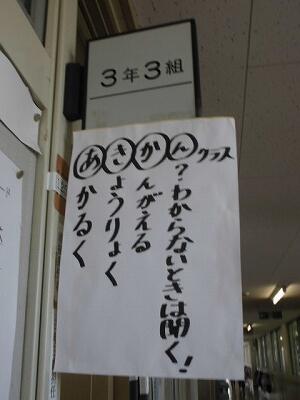 3年3組
あかるく
きょうりょく
かんがえる
ん？わからないときは開く！
クラス